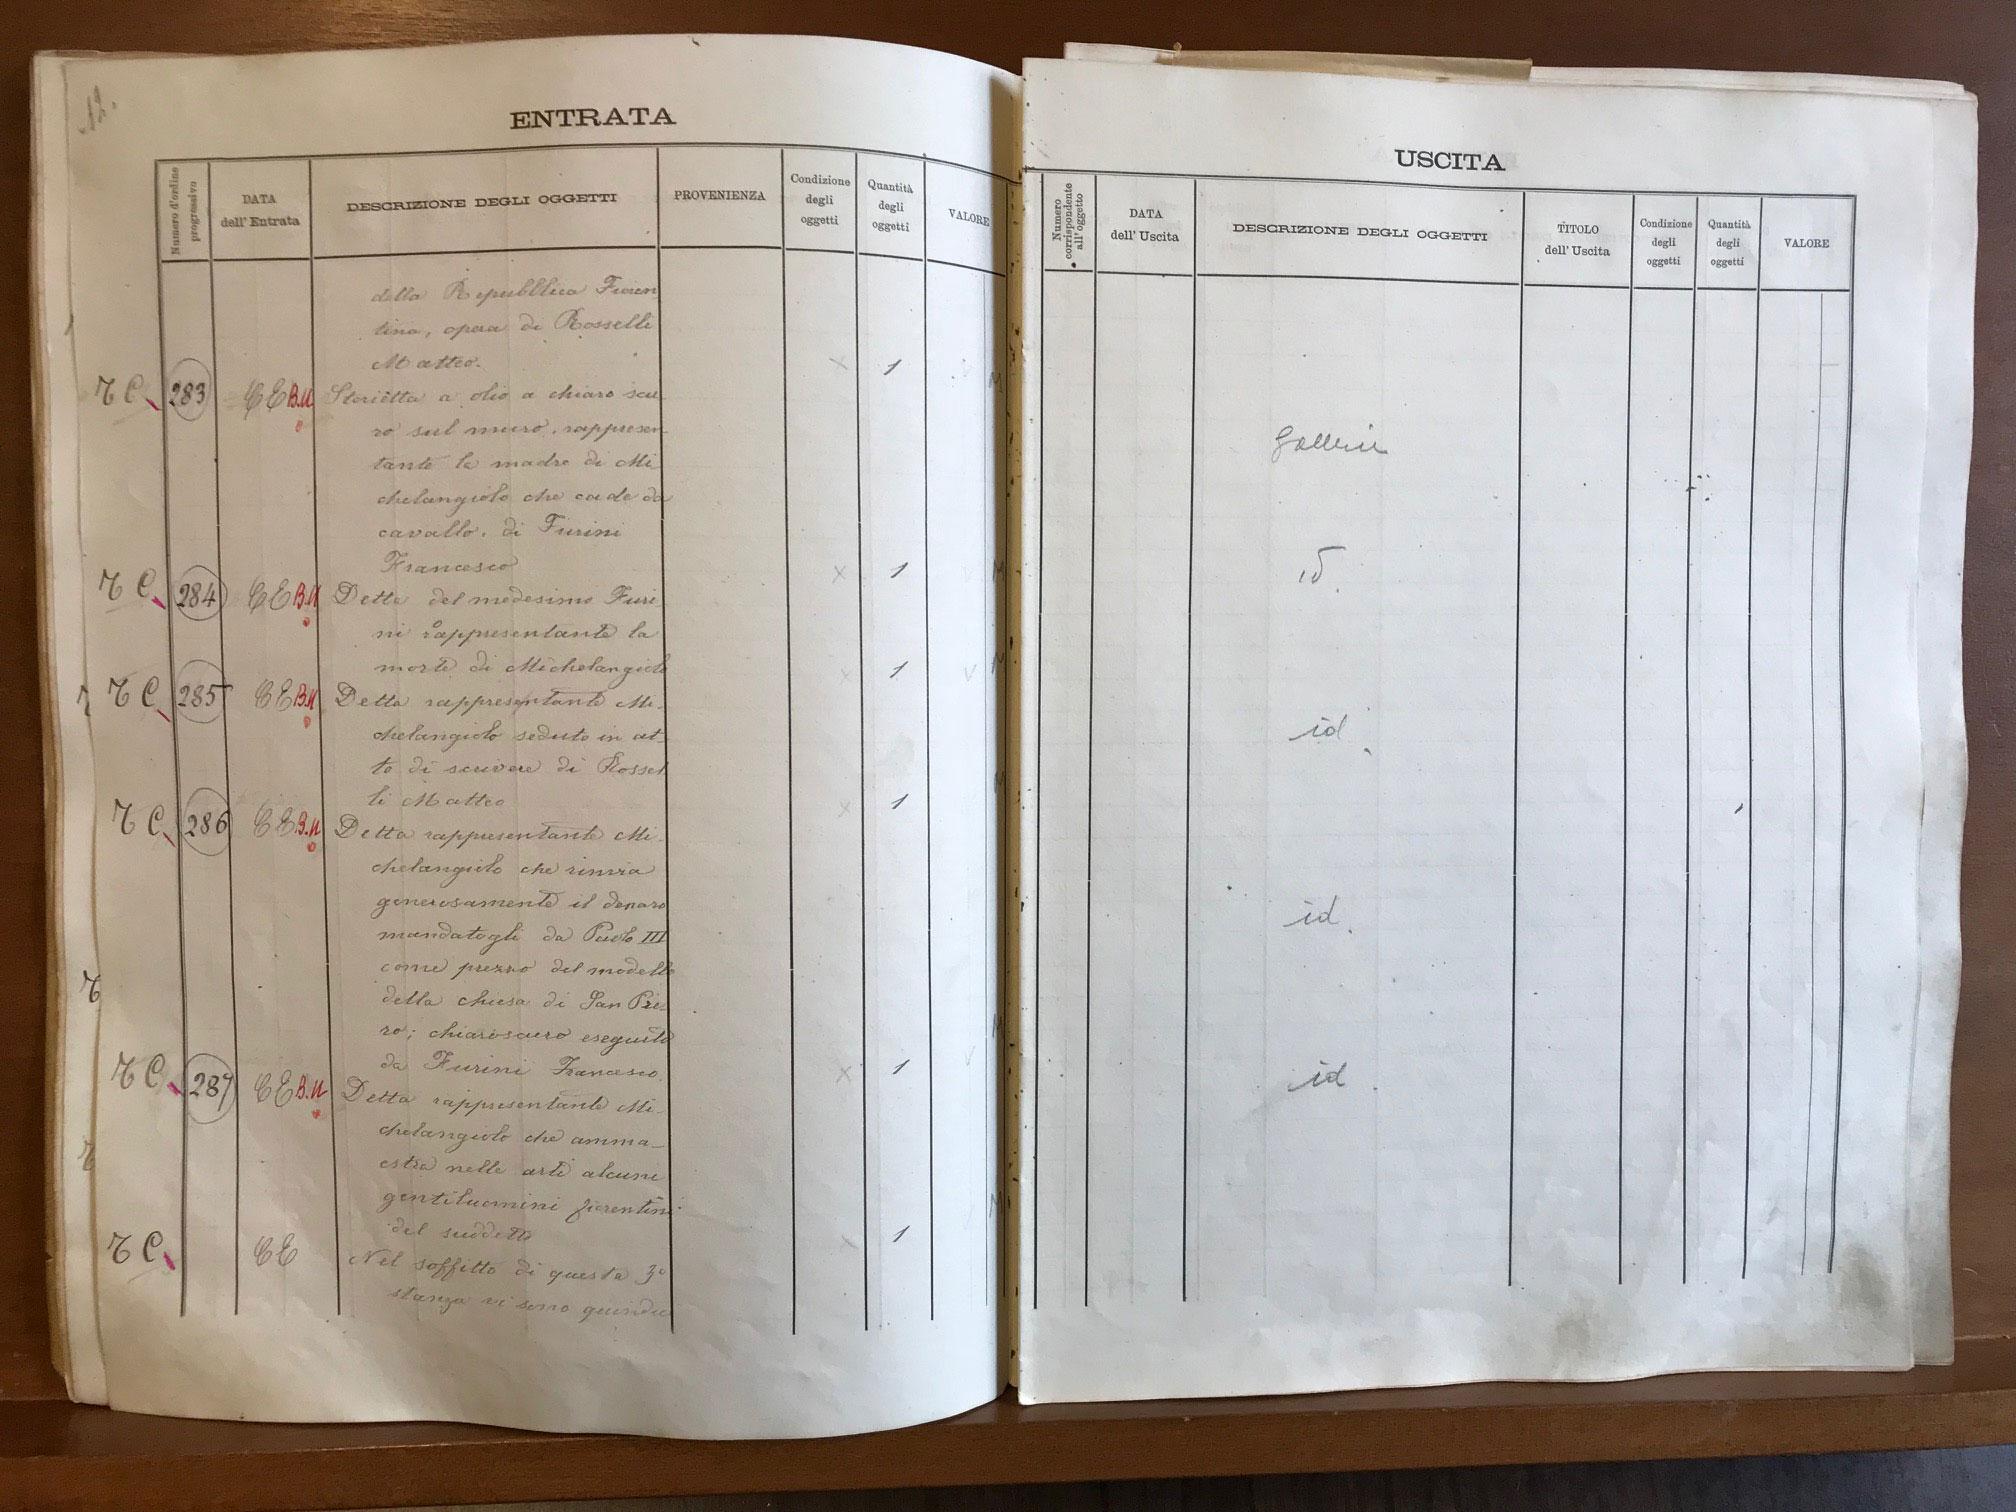 12.
ENTRATA
Numero d'ordine progressivo
DATA dell' Entrata
DESCRIZIONE DEGLI OGGETTI
PROVENIENZA
Condizione degli oggetti
Quantità degli oggetti
VALORE
della Repubblica Fioren
tina, opera di Rosselli
Matteo. 1
283 CE B.U Storietta a olio a chiaro scu
ro sul muro, rappresen
tante la madre di Mi
chelangiolo che cade da
cavallo, di Furini
Francesco 1
284 CE B.U Detta del medesimo Furi
ni rappresentante la
morte di Michelangiolo 1
285 CE B.U Detta rappresentante Mi-
chelangiolo seduto in at-
to di scrivere di Rossel
li Matteo 1
286 CE B.U Detta rappresentante Mi-
chelangiolo che rinvia
generosamente il denaro
mandatogli da Paolo III
come prezzo del modello
della chiesa di San Pie-
ro; chiaroscuro eseguito
da Furini Francesco. 1
287 CE B.U Detta rappresentante Mi-
chelangiolo che amma-
estra nelle arti alcuni
gentiluomini fiorentini
del suddetto 1
CE Nel soffitto di questa 3a
stanza vi sono quindici
USCITA
Numero corrispondente all'oggetto
DATA dell' Uscita
DESCRIZIONE DEGLI OGGETTI
TITOLO dell' Uscita
Condizione degli oggetti
Quantità degli oggetti
VALORE
id.
id.
id.
id.